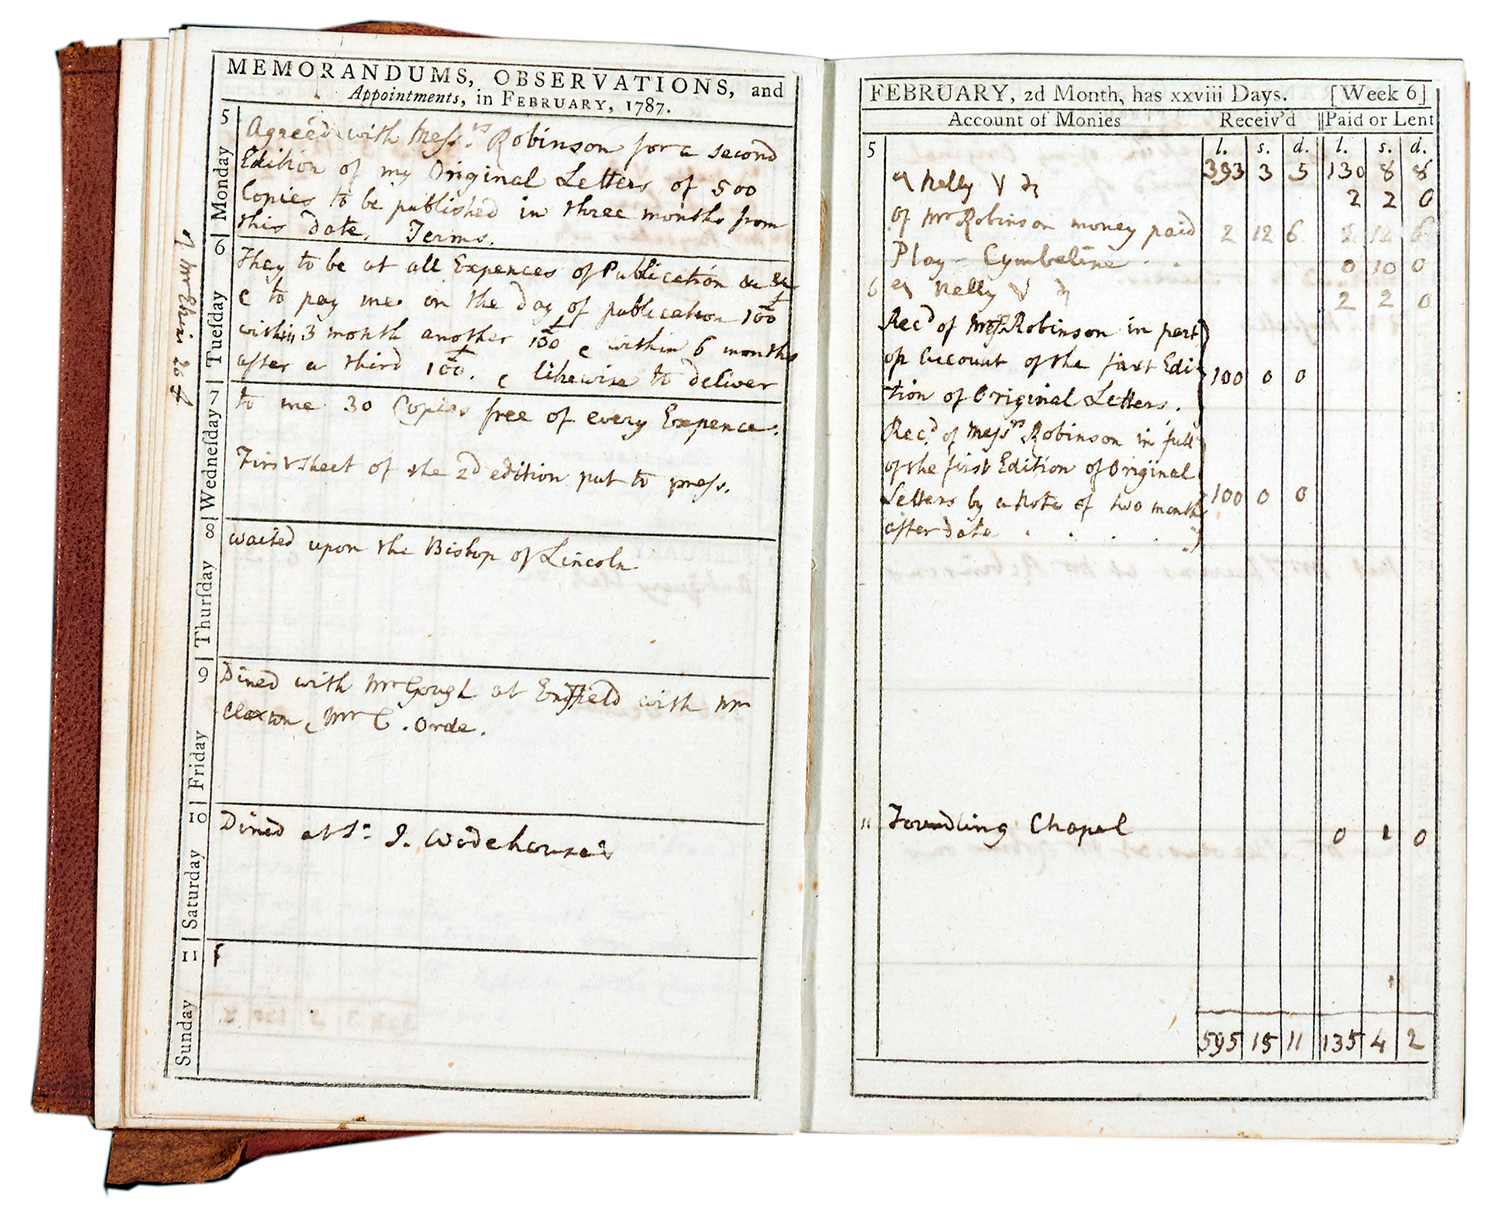 MEMORANDUMS, OBSERVATIONS, and
Appointments, in FEBRUARY, 1787.
Monday 5
Agreed with Messrs. Robinson for a second
Edition of my Original Letters of 500
Copies to be published in three months from
this Date. Terms.
Tuesday 6
They to be at all Expences of Publication &c &
to pay me on the day of publication 100£
within 3 month another 100£ & within 6 months
after a third 100£. & likewise to deliver
Wednesday 7
to me 30 Copies free of every Expence.
First sheet of the 2d edition put to press.
Thursday 8
waited upon the Bishop of Lincoln
Friday 9
Dined with Mr Gough at Enffield with Mr
Claxton, Mr C. Orde.
Saturday 10
Dined at Sr. J. Wodehouse's
Sunday 11
FEBRUARY, 2d Month, has xxviii Days. [Week 6]
Account of Monies Receiv'd Paid or Lent
l. s. d. l. s. d.
5 393 3 5 130 8 8
Nelly 2 2 0
Of Mr Robinson money paid 2 12 6 2 12 6
Play - Cymbeline 0 10 0
6 Nelly 2 2 0
Recd of Mr Robinson in part
of Account of the first Edi
tion of Original Letters. 100 0 0
Recd. of Messrs Robinson in full
of the first Edition of Original
Letters by a Note of two month 100 0 0
after date
11 Foundling Chapel 0 1 0
595 15 11 135 4 2